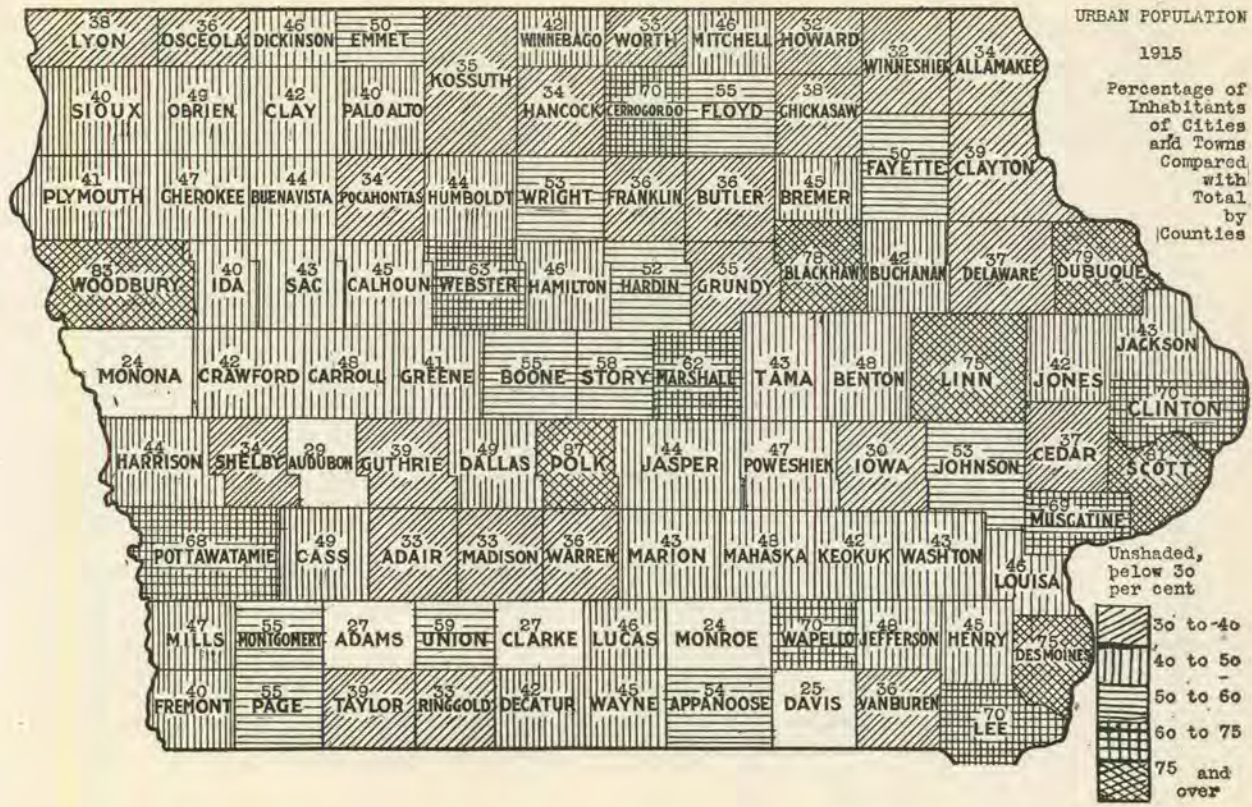 URBAN POPULATION
1915
Percentage of
Inhabitants
of Cities
and Towns
Compared
with
Total
by
Counties
38
LYON
36
OSCEOLA
46
DICKINSON
50
EMMET
35
KOSSUTH
42
WINNEBAGO
33
WORTH
46
MITCHELL
32
HOWARD
32
WINNESHIEK
34
ALLAMAKEE
40
SIOUX
49
OBRIEN
42
CLAY
40
PALO ALTO
34
HANCOCK
70
CERROGORDO
55
FLOYD
38
CHICKASAW
50
FAYETTE
39
CLAYTON
41
PLYMOUTH
47
CHEROKEE
44
BUENAVISTA
34
POCAHONTAS
44
HUMBOLDT
53
WRIGHT
36
FRANKLIN
36
BUTLER
45
BREMER
83
WOODBURY
40
IDA
43
SAC
45
CALHOUN
63
WEBSTER
46
HAMILTON
52
HARDIN
35
GRUNDY
78
BLACKHAWK
42
BUCHANAN
37
DELAWARE
79
DUBUQUE
24
MONONA
42
CRAWFORD
48
CARROLL
41
GREENE
55
BOONE
58
STORY
62
MARSHALL
43
TAMA
48
BENTON
75
LINN
42
JONES
43
JACKSON
70
CLINTON
44
HARRISON
34
SHELBY
29
AUDUBON
39
GUTHRIE
49
DALLAS
87
POLK
44
JASPER
47
POWESHIEK
30
IOWA
53
JOHNSON
37
CEDAR
81
SCOTT
69
MUSCATINE
68
POTTAWATAMIE
49
CASS
33
ADAIR
33
MADISON
36
WARREN
43
MARION
48
MAHASKA
42
KEOKUK
43
WASHTON
46
LOUISA
47
MILLS
55
MONTGOMERY
27
ADAMS
59
UNION
27
CLARKE
46
LUCAS
24
MONROE
70
WAPELLO
48
JEFFERSON
45
HENRY
75
DESMOINES
40
FREMONT
55
PAGE
39
TAYLOR
33
RINGGOLD
42
DECATUR
45
WAYNE
54
APPANOOSE
25
DAVIS
36
VANBUREN
70
LEE
Unshaded,
below 30
per cent
30 to 40
40 to 50
50 to 60
60 to 75
75 and
over